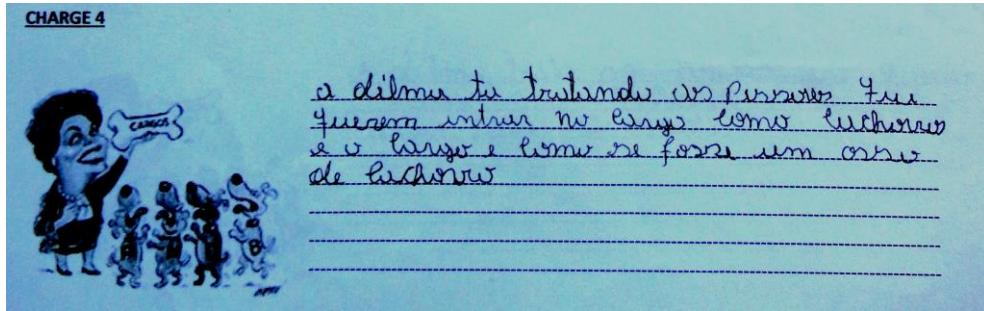 CHARGE 4
CARGOS
a dilma ta tratando as pessoas que
querem entrar no cargo como cachorros
e o cargo e como se fosse um osso
de cachorro